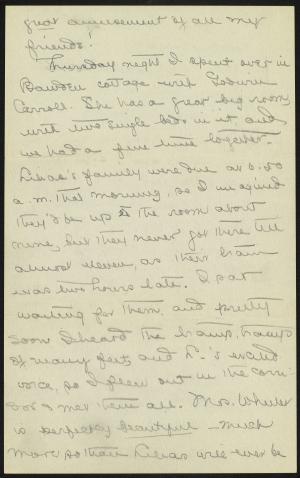 great amusement of all my
friends!
Thursday night I spent over in
Bawden cottage with
Carroll. She has a great big room,
with two single beds in it, and
we had a fine time together.
Lilias's family were due at 6:50
a.m. that morning, so I imagined
they'd be up to the room about
nine, but they never got there till
almost eleven, as their train
was two hours late. I sat
waiting for them, and pretty
soon I heard the tramp, tramp
of many feet, and L-'s excited
voice, so I flew out in the corri-
dor & met them all. Mrs. Wheeler
is perfectly beautiful – much
more so than Lilias will ever be